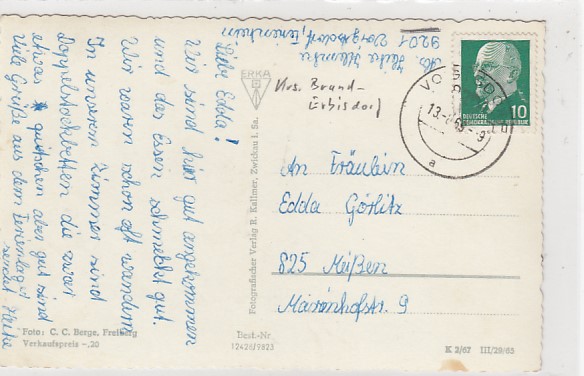 Liebe Edda!
Wir sind hier gut angekommen
und das Essen schmeckt gut.
Wir waren schon oft wandern
In unserem Zimmer sind
Doppelstockbetten die zwar
etwas quietschen aber gut sind
Viele Grüße aus dem Ferienlager
sendet Heike
Heike
9201 Voigtsdorf, Ferienheim
Krs. Brand-
Erbisdorf
ERKA
DEUTSCHE
DEMOKRATISCHE REPUBLIK
10
An Fräulein
Edda Görlitz
825 Meißen
Marienhofstr. 9
Fotografischer Verlag R. Kallmer, Zwickau i. Sa.
Foto: C. C. Berge, Freiberg
Verkaufspreis -.20
Best.-Nr.
12426/9823
K 2/67 III/29/65